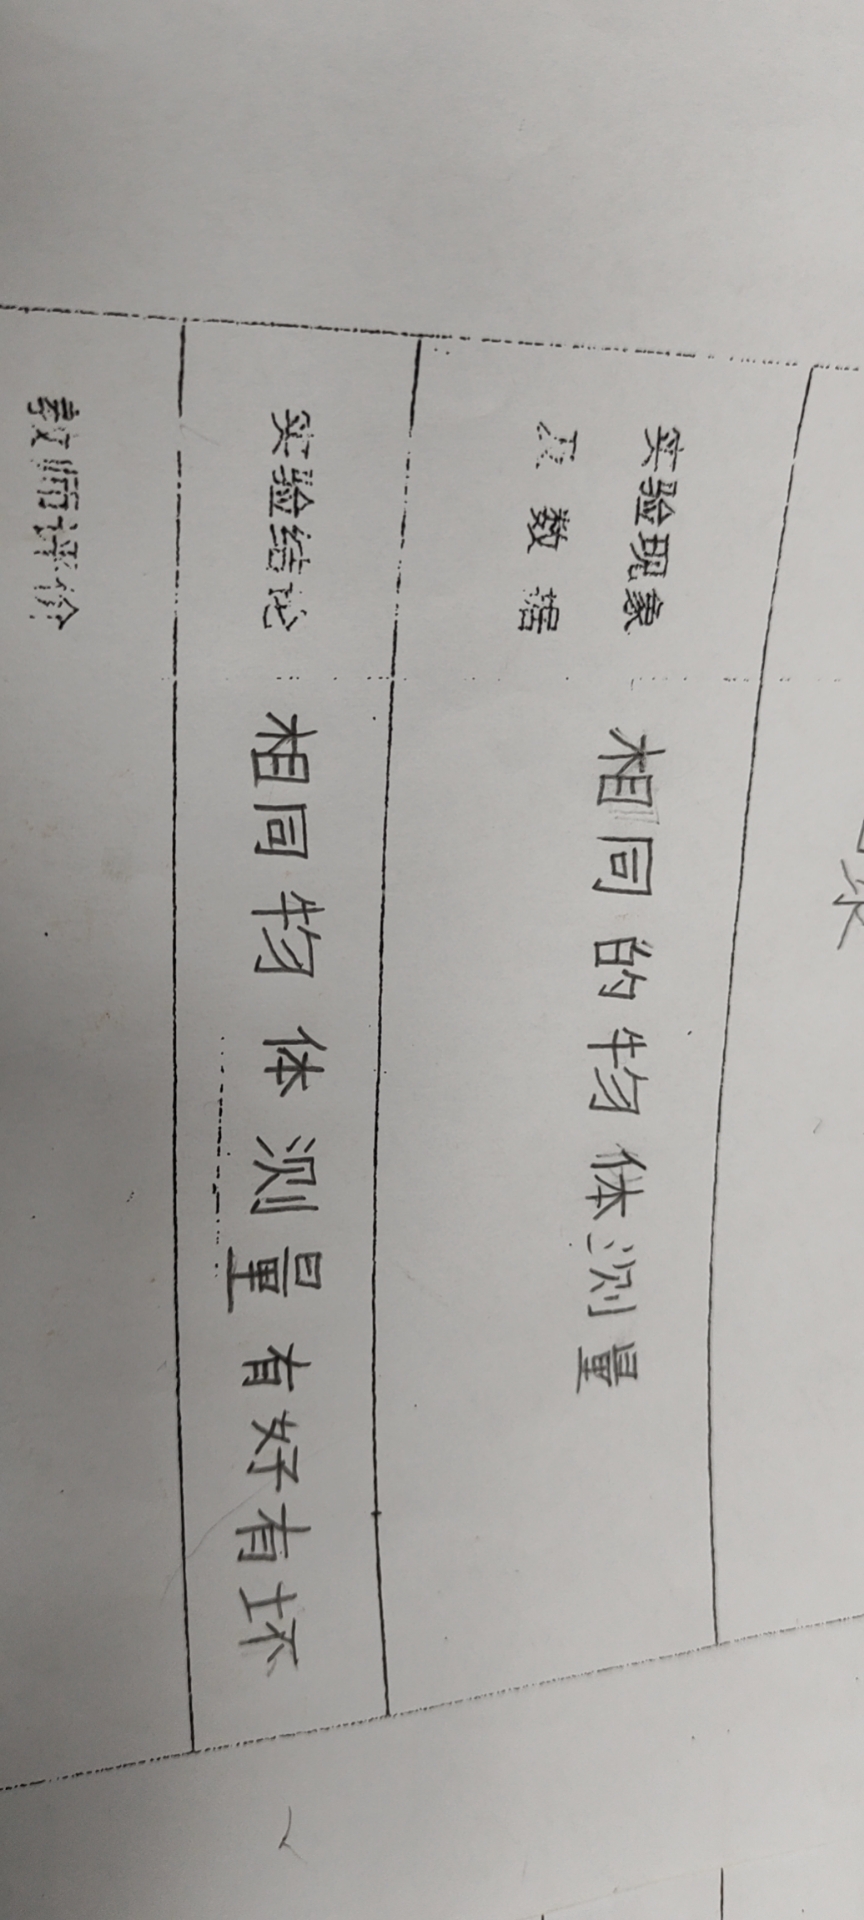 实验现象
及数据
相同的物体测量
实验结论
相同物体测量有好有坏
教师评价